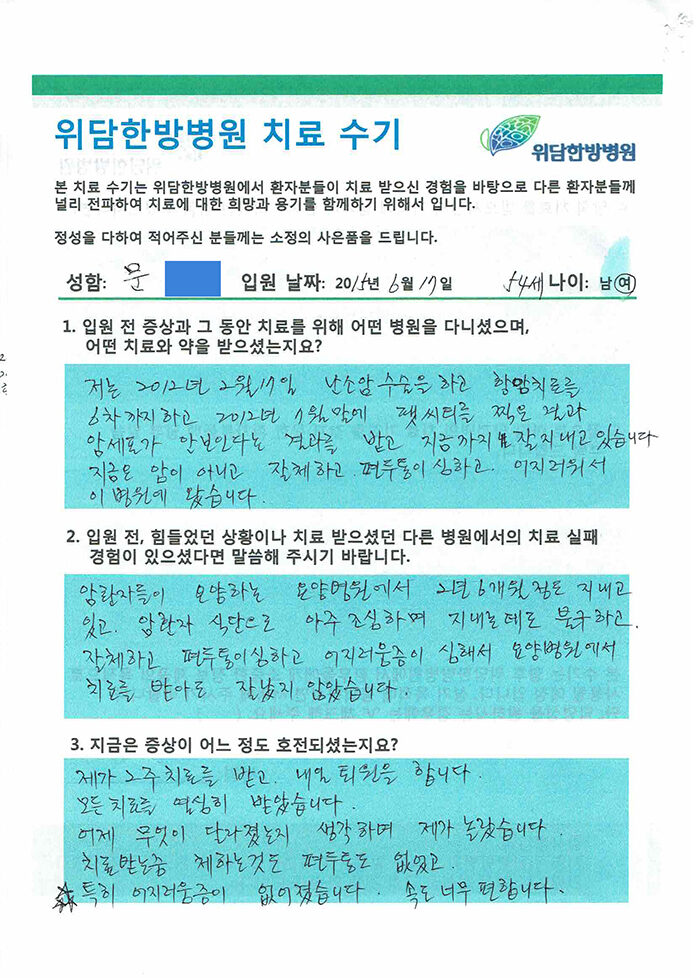 위담한방병원 치료 수기
위담한방병원
본 치료 수기는 위담한방병원에서 환자분들이 치료 받으신 경험을 바탕으로 다른 환자분들께
널리 전파하여 치료에 대한 희망과 용기를 함께하기 위해서 입니다.
정성을 다하여 적어주신 분들께는 소정의 사은품을 드립니다.
성함: 문 입원 날짜: 2015년 6월 17일 54세 나이: 남 여
1. 입원 전 증상과 그 동안 치료를 위해 어떤 병원을 다니셨으며,
어떤 치료와 약을 받으셨는지요?
저는 2012년 2월17일 난소암 수술을 하고 항암치료를
6차까지하고 2012년 7월말에 팻씨티를 찍은 결과
암세포가 안보인다는 결과를 받고 지금까지 잘지내고 있습니다
지금은 암이 아니고 잘체하고. 편두통이 심하고. 어지러워서
이 병원에 왔습니다.
2. 입원 전, 힘들었던 상황이나 치료 받으셨던 다른 병원에서의 치료 실패
경험이 있으셨다면 말씀해 주시기 바랍니다.
암환자들이 요양하는 요양병원에서 2년6개월정도 지내고
있고. 암환자 식단으로 아주 조심하며 지내는데도 불구하고.
잘체하고 편두통이심하고 어지러움증이 심해서 요양병원에서
치료를 받아도 잘낫지 않았습니다
3. 지금은 증상이 어느 정도 호전되셨는지요?
제가 2주 치료를 받고. 내일 퇴원을 합니다.
모든치료를 열심히 받았습니다.
어제 무엇이 달라졌는지 생각하며 제가 놀랐습니다.
치료받는중 체하는것도 편두통도 없었고.
☆특히 어지러움증이 없어졌습니다. 속도 너무 편합니다.